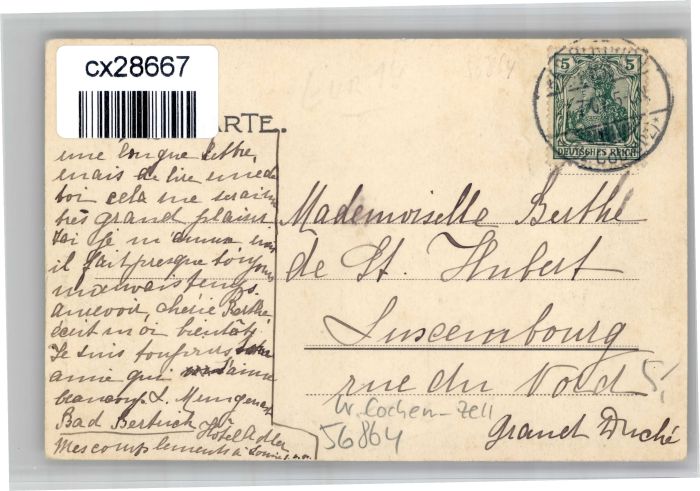 cx28667
ARTE.
5 5
DEUTSCHES REICH
une longue lettre,
mais de lire une de
toi cela me serait un
très grand plaisir
Ici je m'ennuie
il fait presque toujours
mauvais temps.
Au revoir, chérie Berthe
écrit moi bientôt,
Je suis toujours
amie qui t'aime
beaucoup.
Bad Bertrich Hôtel Adler
Mes compliments à
Mademoiselle Berthe
de St. Hubert
Luxembourg
rue du Nord
Grand Duché
W. Cochem-Zell
56864
5,-
56864